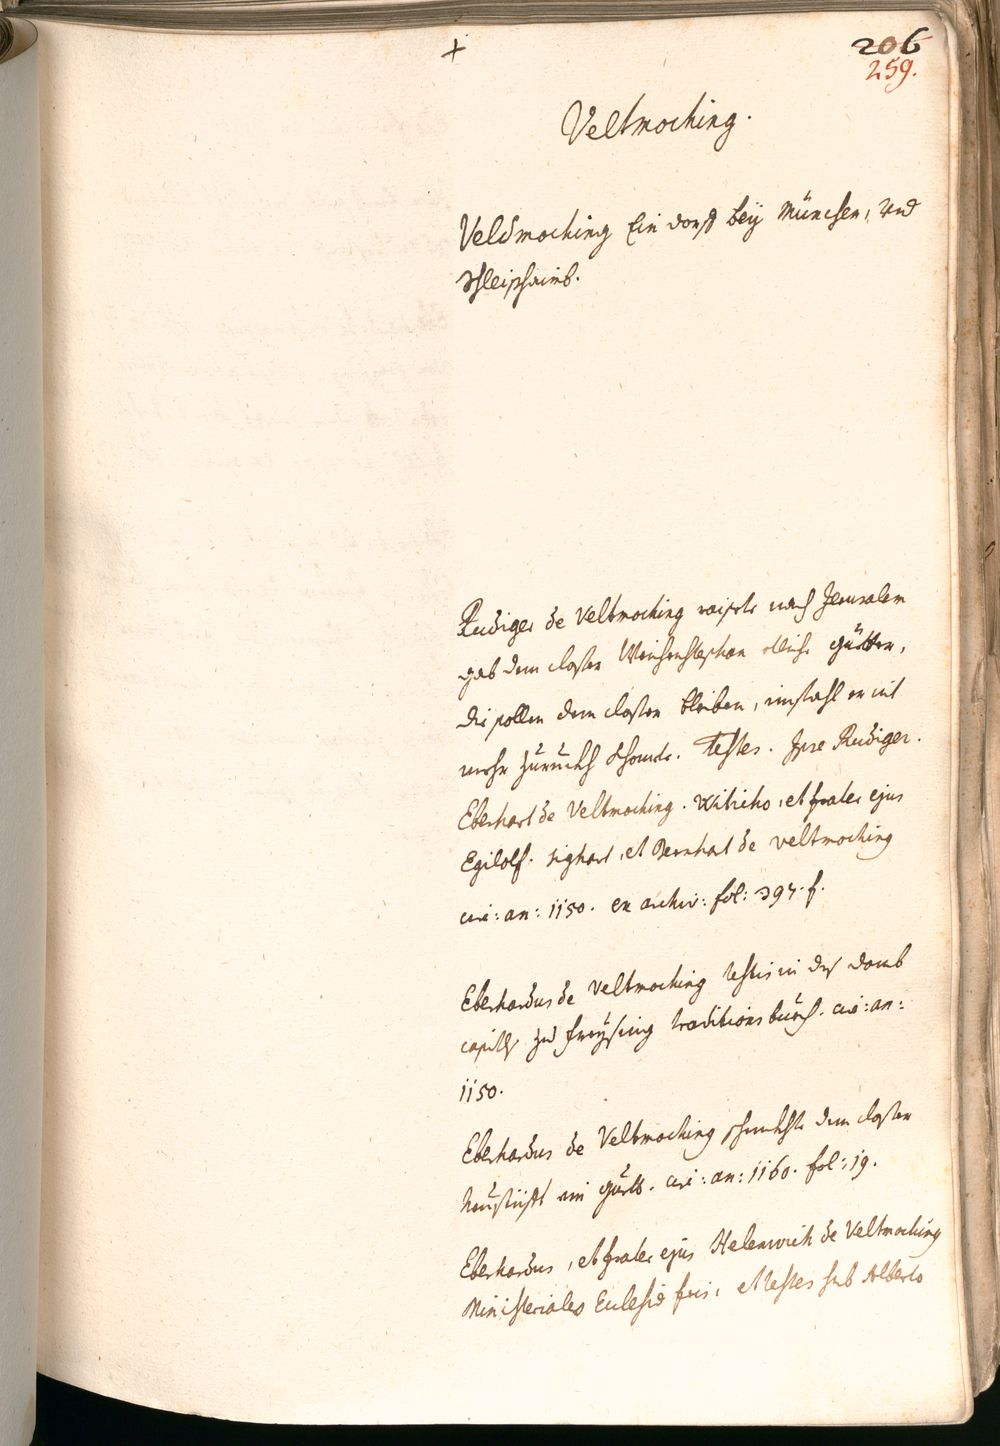 +
206
259.
Veltmoching.
Veldmoching Ein dorf bey München, und
Schleisshaimb.
Rudiger de Veltmoching raisete nach Jerusalem
gab dem closter Weichenstephan etliche güetter,
die sollen dem closter bleiben, imfahl er nit
mehr zurückh khomete. Testes. Ipse Rudiger.
Eberhart de Veltmoching. Witicho, et frater ejus
Egilolf. Sighart, et Bernhat de veltmoching
circ: an: 1150. ex archiv: fol: 397. f.
Eberhardus de Veltmoching testis in des domb
capitls zu freysing traditionsbuech. circ: an:
1150.
Eberhardus de Veltmoching schenckhte dem closter
Neustüfft ein guett. circ: an: 1160. fol: 19.
Eberhardus, et frater ejus Helenwich de Veltmoching
Ministeriales Ecclesiæ fris: et testes sub Alberto